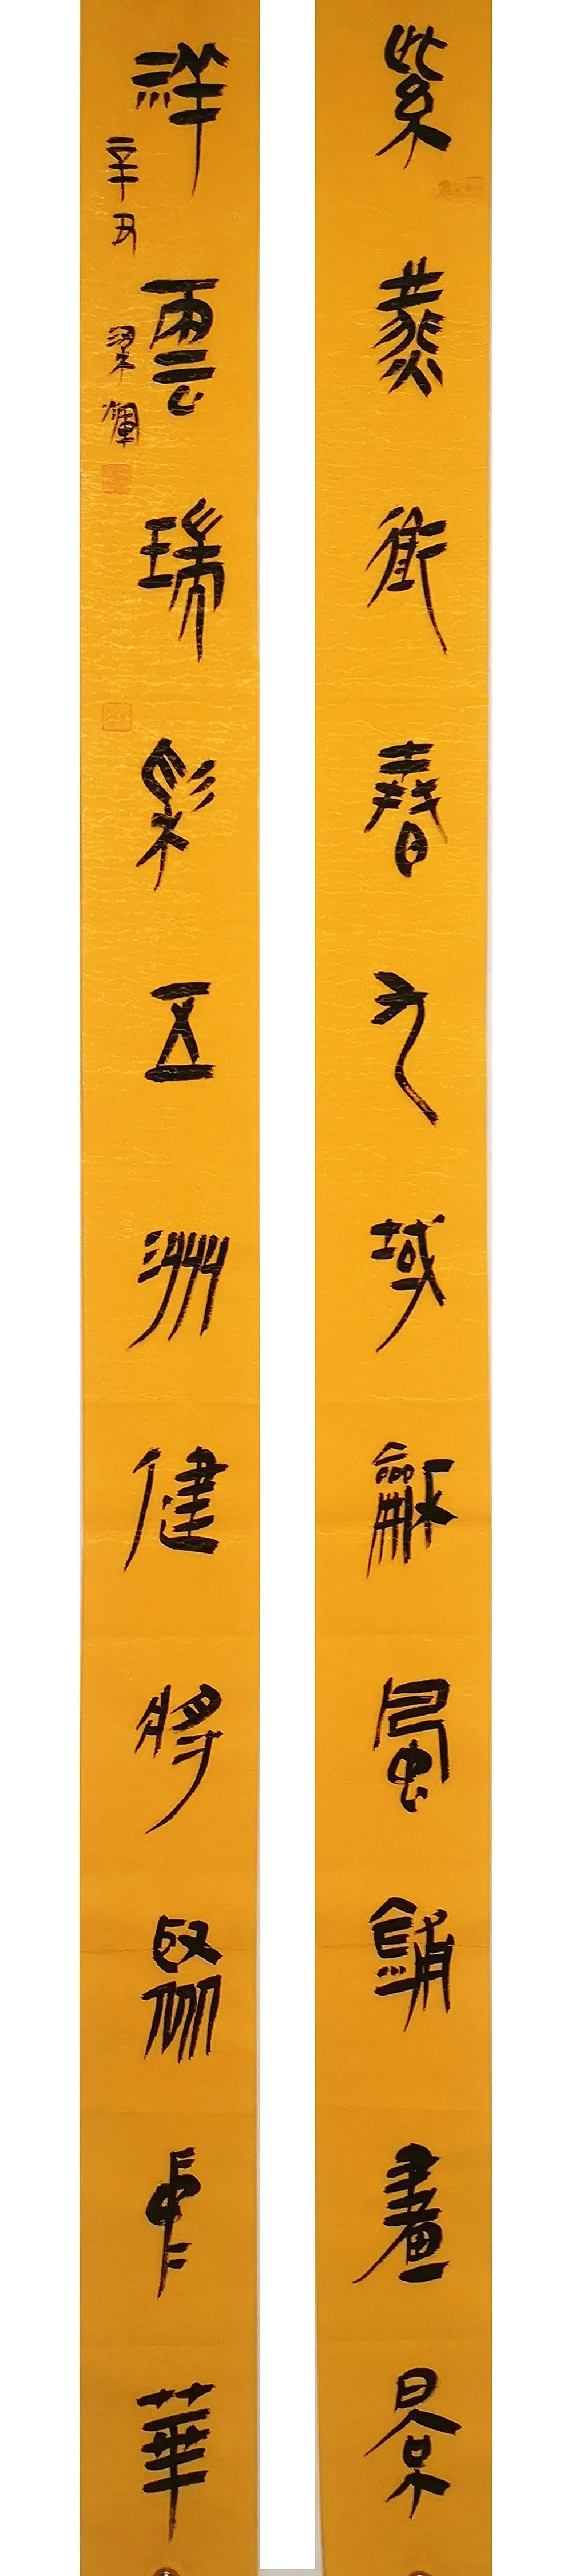 紫燕銜春之域龢風鋪畫景
祥雲瑞彩五洲健將聚中華
辛丑 梁煇